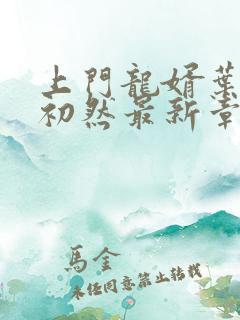 上門龍婿葉
初然最新章
馬金
未经同意禁止转载